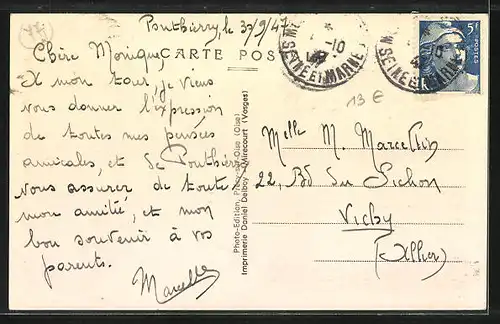 Ponthierry, le 30/9/47
Chère Monique,
CARTE POSTALE
A mon tour, je viens
vous donner l'expression
de toutes mes pensées
amicales, et de Ponthierry
vous assurer de toute
mon amitié, et mon
bon souvenir à vos
parents.
Marcelle
Photo-Edition,
(Oise)
Imprimerie Daniel Delboy, Mirecourt (Vosges)
SEINE ET MARNE
SEINE ET MARNE
5F
POSTES
13 €
Melle M. Marcellin
22, Bd du Sichon
Vichy
(Allier)